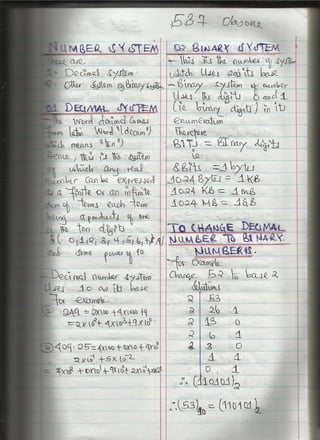 NUMBER SYSTEM
These are
1. Decimal System
2. Other System eg Binary System
01 DECIMAL SYSTEM
The word decimal comes
from latin word "(decem")
which means "ten")
Hence, this is the system
of which any real
number can be expressed
as a finite or an infinite
sum of terms each term
being a products of one
of the ten digits
0, 1, 2, 3, 4, 5, 6, 7, 8, 9
and some power of 10
Decimal number system
uses 10 as its base
for example
249 = 2x100 + 4x10 + 9
= 2x10² + 4x10¹ + 9x10⁰
409.25 = 4x100 + 0x10 + 9x10⁰
2x10⁻¹ + 5x10⁻²
= 4x10² + 0x10¹ + 9x10⁰ + 2x10⁻¹ + 5x10⁻²
02 BINARY SYSTEM
This is the number of system
which uses as its base
binary system of number
uses the digits 0 and 1
(ie binary digits) in its
enumeration
Therefore
BITS = BInary digits
ie
8 Bits = 1 bytes
1024 Bytes = 1KB
1024 KB = 1MB
1024 MB = 1GB
TO CHANGE DECIMAL
NUMBER TO BINARY
NUMBERS.
for Example:
Change 53 to base 2
Solutions
2 53
2 26 1
2 13 0
2 6 1
2 3 0
1 1
0 1
∴ (110101)₂
∴ (53)₁₀ = (110101)₂